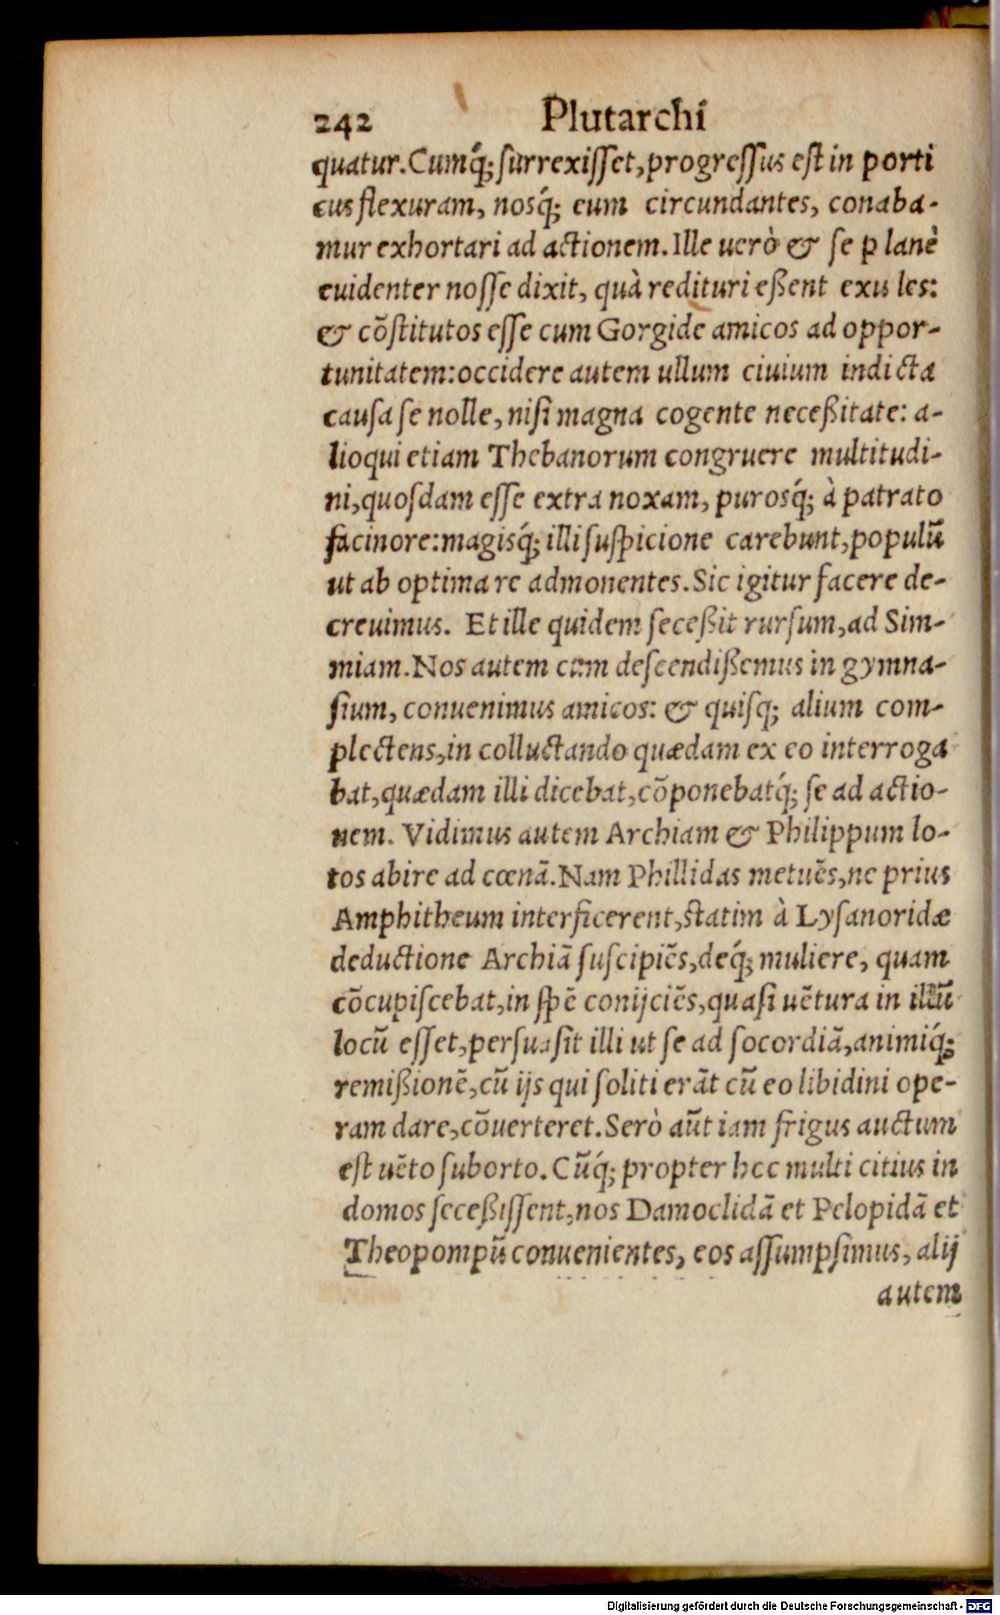 242 Plutarchi
quatur. Cumq́; surrexisset, progressus est in porti
cus flexuram, nosq́; eum circundantes, conaba-
mur exhortari ad actionem. Ille uerò & se planè
euidenter nosse dixit, quà redituri eßent exules:
& cõstitutos esse cum Gorgide amicos ad oppor-
tunitatem: occidere autem ullum ciuium indicta
causa se nolle, nisi magna cogente neceßitate: a-
lioqui etiam Thebanorum congruere multitudi-
ni, quosdam esse extra noxam, purosq́; à patrato
facinore: magisq́; illi suspicione carebunt, populũ
ut ab optima re admonentes. Sic igitur facere de-
creuimus. Et ille quidem seceßit rursum, ad Sim-
miam. Nos autem cum descendißemus in gymna-
sium, conuenimus amicos: & quisq; alium com-
plectens, in colluctando quædam ex eo interroga
bat, quædam illi dicebat, cõponebatq́; se ad actio-
nem. Vidimus autem Archiam & Philippum lo-
tos abire ad cœnã. Nam Phillidas metuẽs, ne prius
Amphitheum interficerent, statim à Lysanoridæ
deductione Archiã suscipiẽs, deq́; muliere, quam
cõcupiscebat, in spẽ conijciẽs, quasi uẽtura in illũ
locũ esset, persuasit illi ut se ad socordiã, animiq́;
remißionẽ, cũ ijs qui soliti erãt cũ eo libidini ope-
ram dare, cõuerteret. Serò aũt iam frigus auctum
est uẽto suborto. Cũq́; propter hec multi citius in
domos seceßissent, nos Damoclidã et Pelopidã et
Theopompũ conuenientes, eos assumpsimus, alij
autem
Digitalisierung gefördert durch die Deutsche Forschungsgemeinschaft - DFG